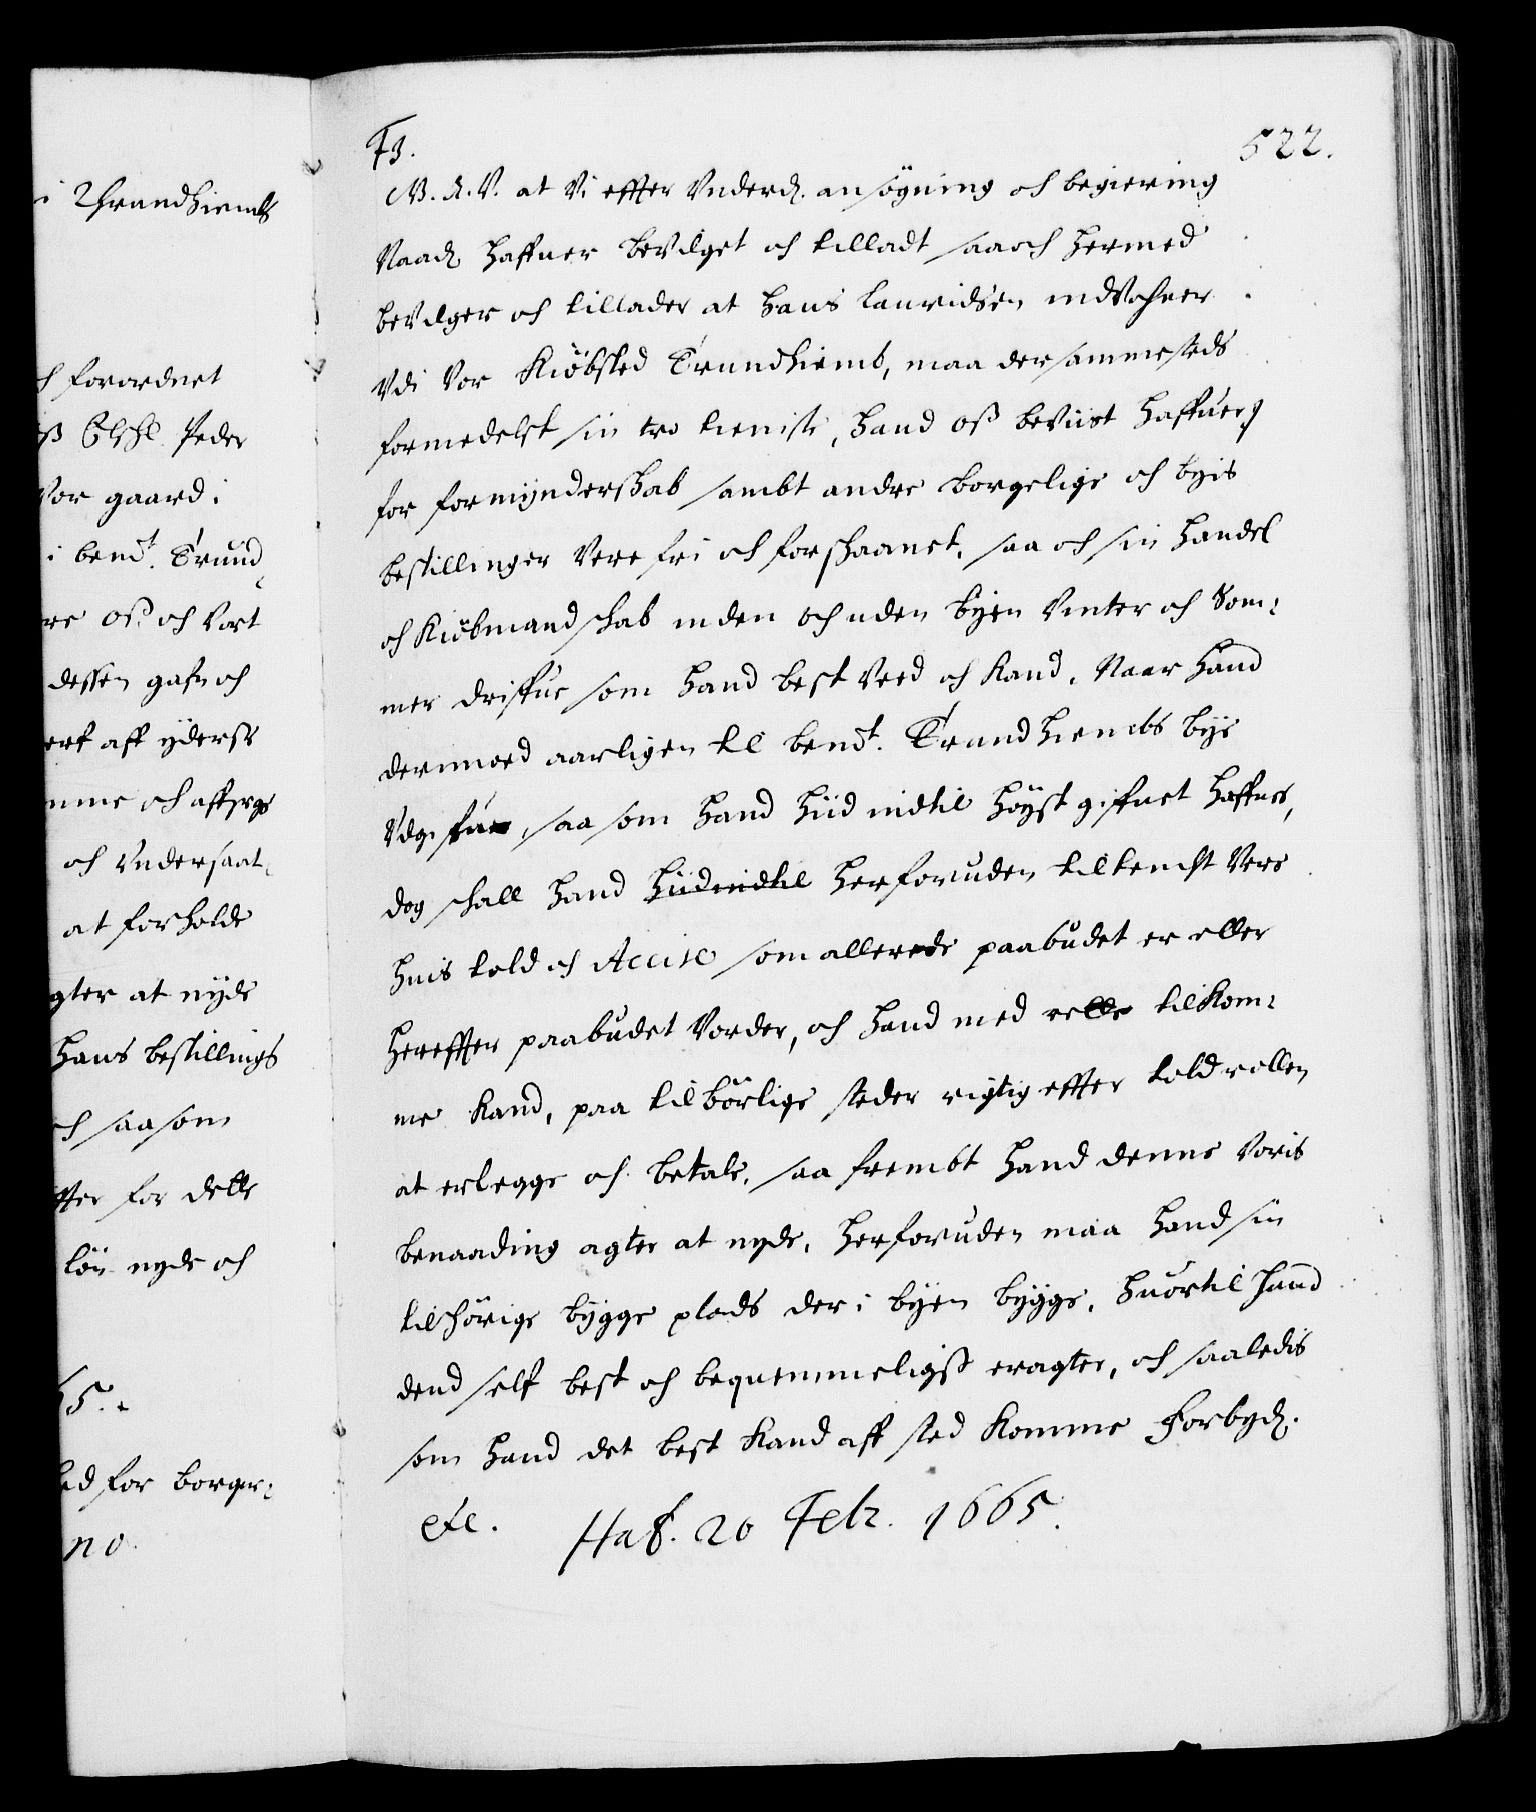 i Thrundhiembs
h forordnet
ß Elschl. Peder
Vor gaard i
i bemt. Trund
re oß och Vort
dessen gafn och
erk aff yderste
mme och afferge
och Undersaat
at forholde
gter at nyde
Hans bestillings
h saasom
fter for dette
løn nyde och
65.
ed for borger
no.
F3.
522.
G. A. V. at Vi effter Underd. ansøgning och begiering
Naad. haffuer beVilget och tilladt saa och hermed
beVilger och tillader at Hans Lauridsen indVohner
Vdi Vor Kiöbsted Trundhiemb, maa dersammesteds
formedelst sin tro tieniste, hand oß beviist haffuer,
for formynderskab sambt andre borgelige och byis
bestillinger Vere fri och forskaanet, saa och sin handel
och Kiöbmandskab inden och uden byen Vinter och Som-
mer driffue som hand best Veed och Kand, Naar hand
dermoed aarligen til bemt. Trundhiembs byis
Vdgifter, saa som hand hiid indtil høyst giffuet haffuer,
dog schall hand hiidindtil herforuden tiltencht Vere
huis told och Accise som allerede paabudet er eller
hereffter paabudet Vorder, och hand med rette tilkom-
me Kand, paa tilbörlige steder rigtig effter toldrollen
at erlegge och betale, saa frembt hand denne Voris
benaading agter at nyde, herforuden maa hand sin
tilhörige bygge plads der i byen bygge, huortil hand
dend self best och beqvemmeligst eragter, och saaledis
som hand det best Kand aff sted Komme Forbyd.
etc. Haf. 20 Febr. 1665.